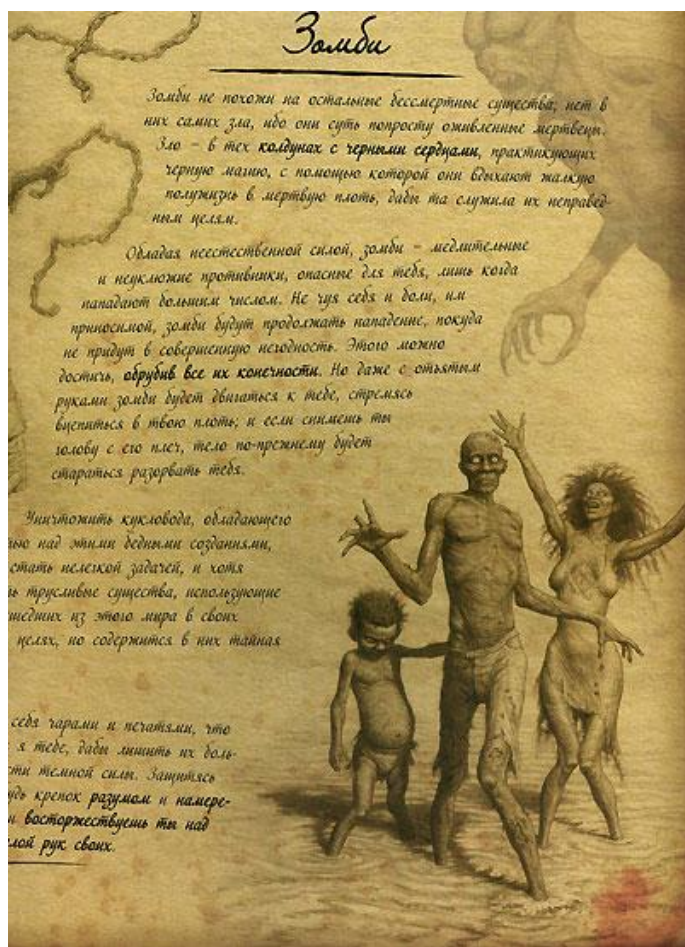 Зомби
Зомби не похожи на остальные бессмертные существа; нет в
них самих зла, ибо они суть попросту оживленные мертвецы.
Зло – в тех колдунах с черными сердцами, практикующих
черную магию, с помощью которой они вдыхают жалкую
полужизнь в мертвую плоть, дабы та служила их неправед-
ным целям.
Обладая неестественной силой, зомби – медлительные
и неуклюжие противники, опасные для тебя, лишь когда
нападают большим числом. Не чуя себя и боли, им
приносимой, зомби будут продолжать нападение, покуда
не придут в совершенную негодность. Этого можно
достичь, обрубив все их конечности. Но даже с отъятым
руками зомби будет двигаться к тебе, стремясь
вцепиться в твою плоть; и если снимешь ты
голову с его плеч, тело по-прежнему будет
стараться разорвать тебя.
Уничтожить кукловода, обладающего
тью над этими бедными созданиями,
стать нелегкой задачей, и хотя
ь трусливые существа, использующие
шедших из этого мира в своих
целях, но содержится в них тайная
себя чарами и печатями, что
я тебе, дабы лишить их боль-
сти темной силы. Защитясь
удь крепок разумом и намере-
и восторжествуешь ты над
лой рук своих.